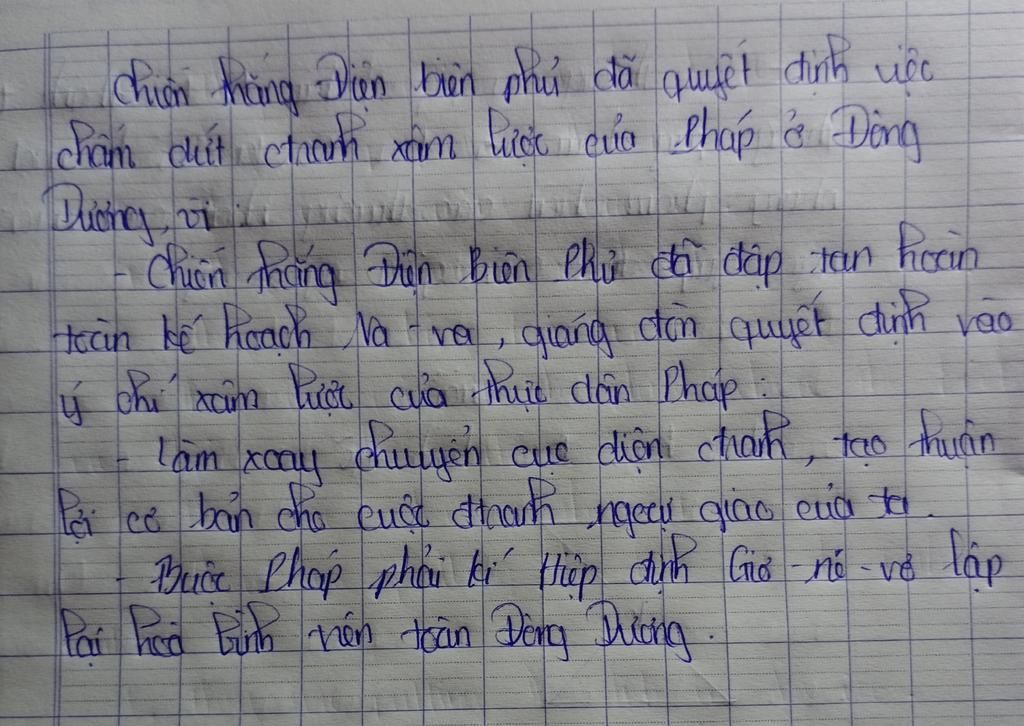 Chiến thắng Điện biên phủ đã quyết định việc
chấm dứt ctranh xâm lược của Pháp ở Đông
Dương, vì :
- Chiến thắng Điện Biên Phủ đã đập tan hoàn
toàn kế hoạch Na - va, giáng đòn quyết định vào
ý chí xâm lược của thực dân Pháp.
- Làm xoay chuyển cục diện ctranh, tạo thuận
lợi cơ bản cho cuộc đtranh ngoại giao của ta.
- Buộc Pháp phải kí Hiệp định Giơ - ne - vơ lập
lại hoà bình trên toàn Đông Dương.